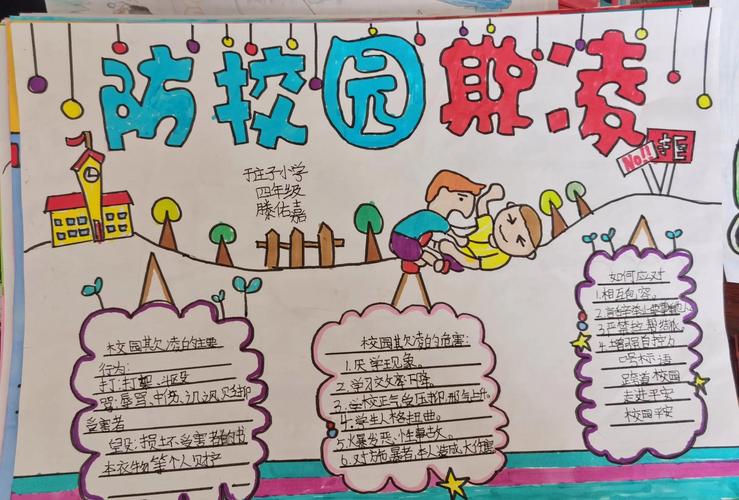 防校园欺凌
于庄子小学
四年级
滕佑嘉
No!!
校园欺凌的主要
行为:
打:打架、斗殴
骂:辱骂、中伤、讥讽、贬抑
受害者
毁:损坏受害者的书
本衣物等个人财产
校园欺凌的危害:
1.厌学现象。
2.学习效率下降。
3.学校正气的压抑邪气上升。
4.学生人格扭曲。
5.火暴发恶、性事故。
6.对施暴者本人造成大伤害
如何应对
1.相互包容。
3.严禁拉帮结队
4.增强自控力
喊标语
踏着校园
走进平安
校园平安